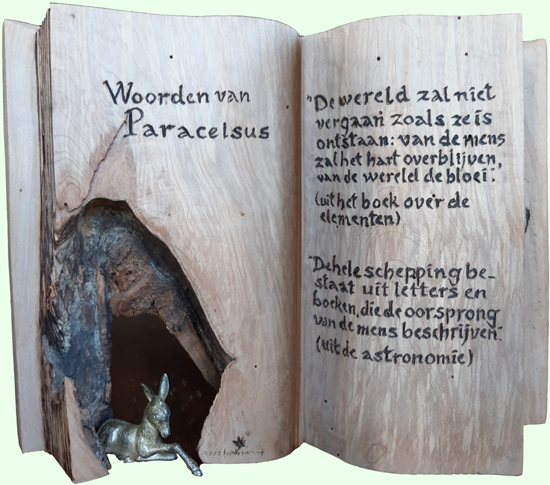 Woorden van
Paracelsus
"De wereld zal niet
vergaan zoals ze is
ontstaan: van de mens
zal het hart overblijven,
van de wereld de bloei".
(uit het boek over de
elementen)
"De hele schepping be-
staat uit letters en
boeken, die de oorsprong
van de mens beschrijven".
(uit de astronomie)